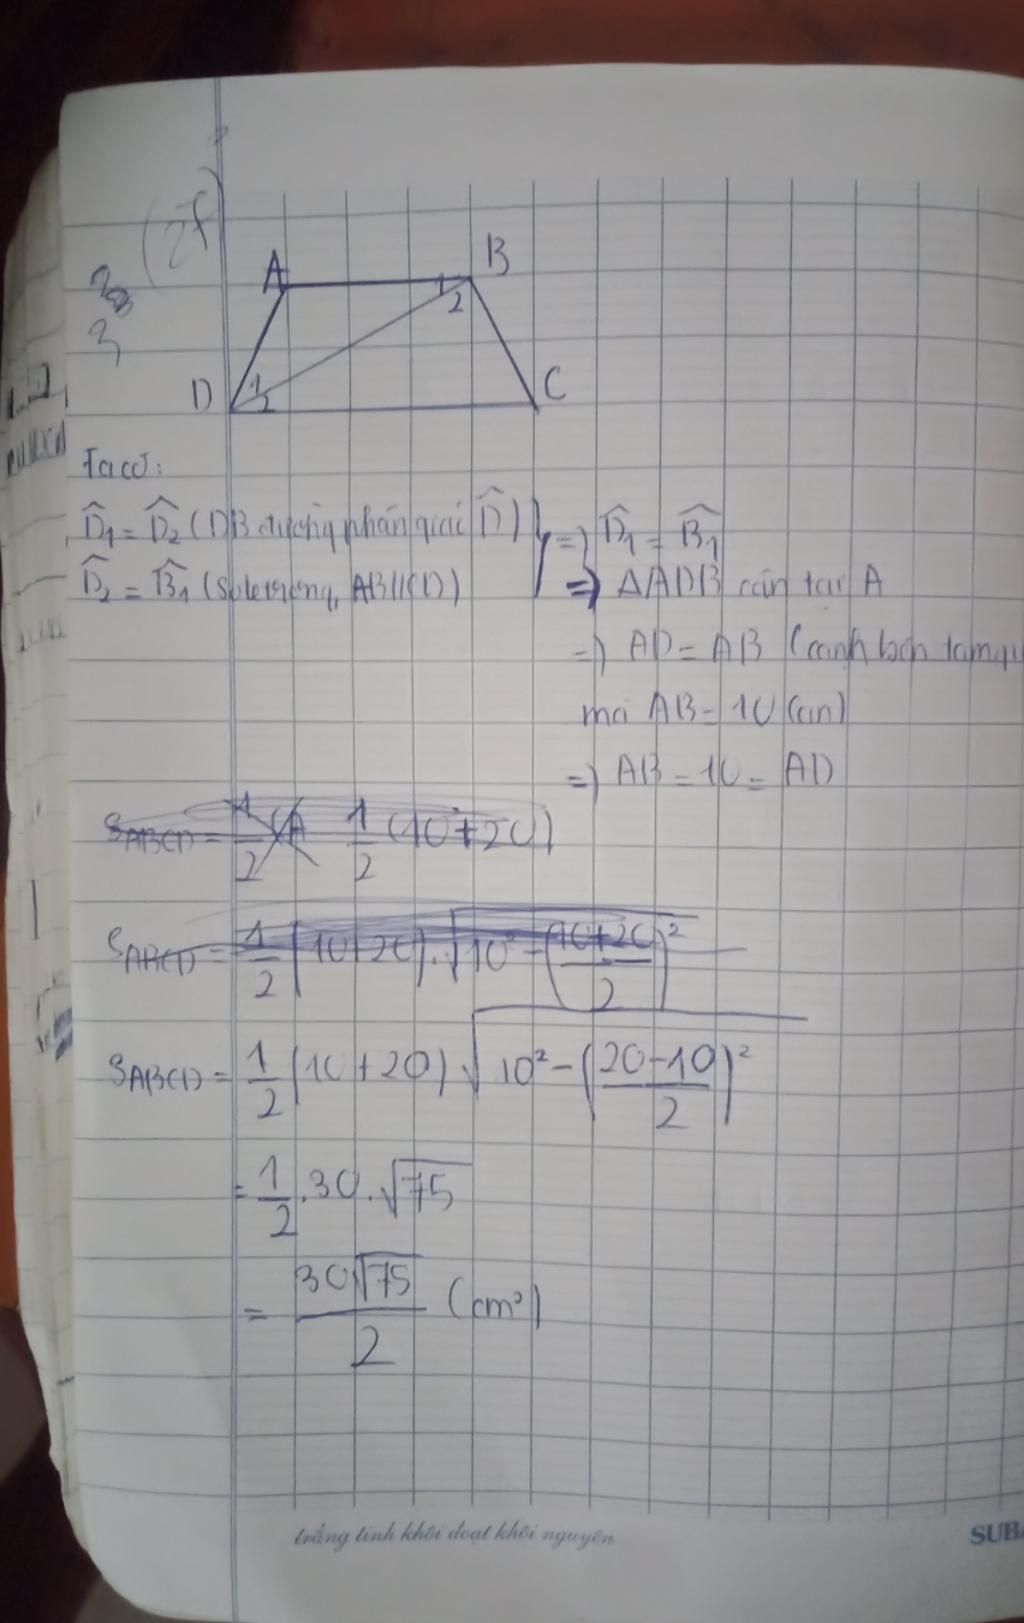 A
B
1
2
D
1
2
C
Ta có:
D̂₁ = D̂₂ (DB đường phân giác D̂) } => D̂₁ = B̂₁
D̂₂ = B̂₁ (so le trong, AB//CD) => ΔADB cân tại A
=> AD = AB (cạnh bên tam
mà AB = 10 (cm)
=> AB = 10 = AD
S_ABCD = 1/2 (A 1/2 (10+20)
S_ABCD = 1/2 (10+20).√(10² - ((10+20)/2)²)
S_ABCD = 1/2 (10+20) √(10² - ((20-10)/2)²)
= 1/2 .30.√75
= 30√75/2 (cm²)
trắng tinh khôi đoạt khôi nguyên